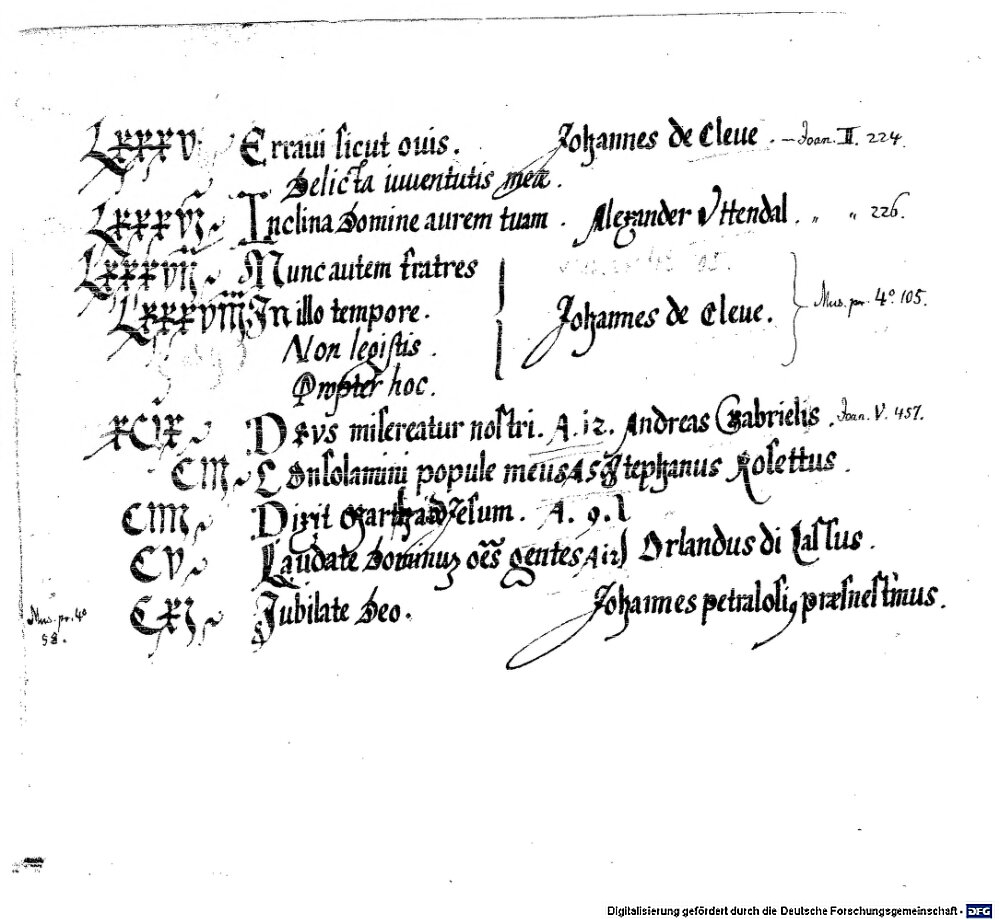 Lxxxv. Erraui sicut ouis. Johannes de Cleue. – Joan. II. 224.
Delicta iuuentutis meæ.
Lxxxvj Inclina Domine aurem tuam. Alexander Vttendal. " " 226.
Lxxxvij Nunc autem fratres
Lxxxviij In illo tempore. Johannes de Cleue. Mus. pr. 4º. 105.
Non legistis.
Propter hoc.
xCix Deus misereatur nostri. A. 12. Andreas Gabrielis. Joan. V. 457.
CIII Consolamini popule meus A 5 Stephanus Rosettus.
CIIII Dixit Martha ad Jesum. A. 9.
CV Laudate Dominum oēs gentes A 12 Orlandus di Lassus.
Mus. pr. 4º 58. CXI Jubilate Deo. Johannes petralosiȝ prænestinus.
Digitalisierung gefördert durch die Deutsche Forschungsgemeinschaft - DFG